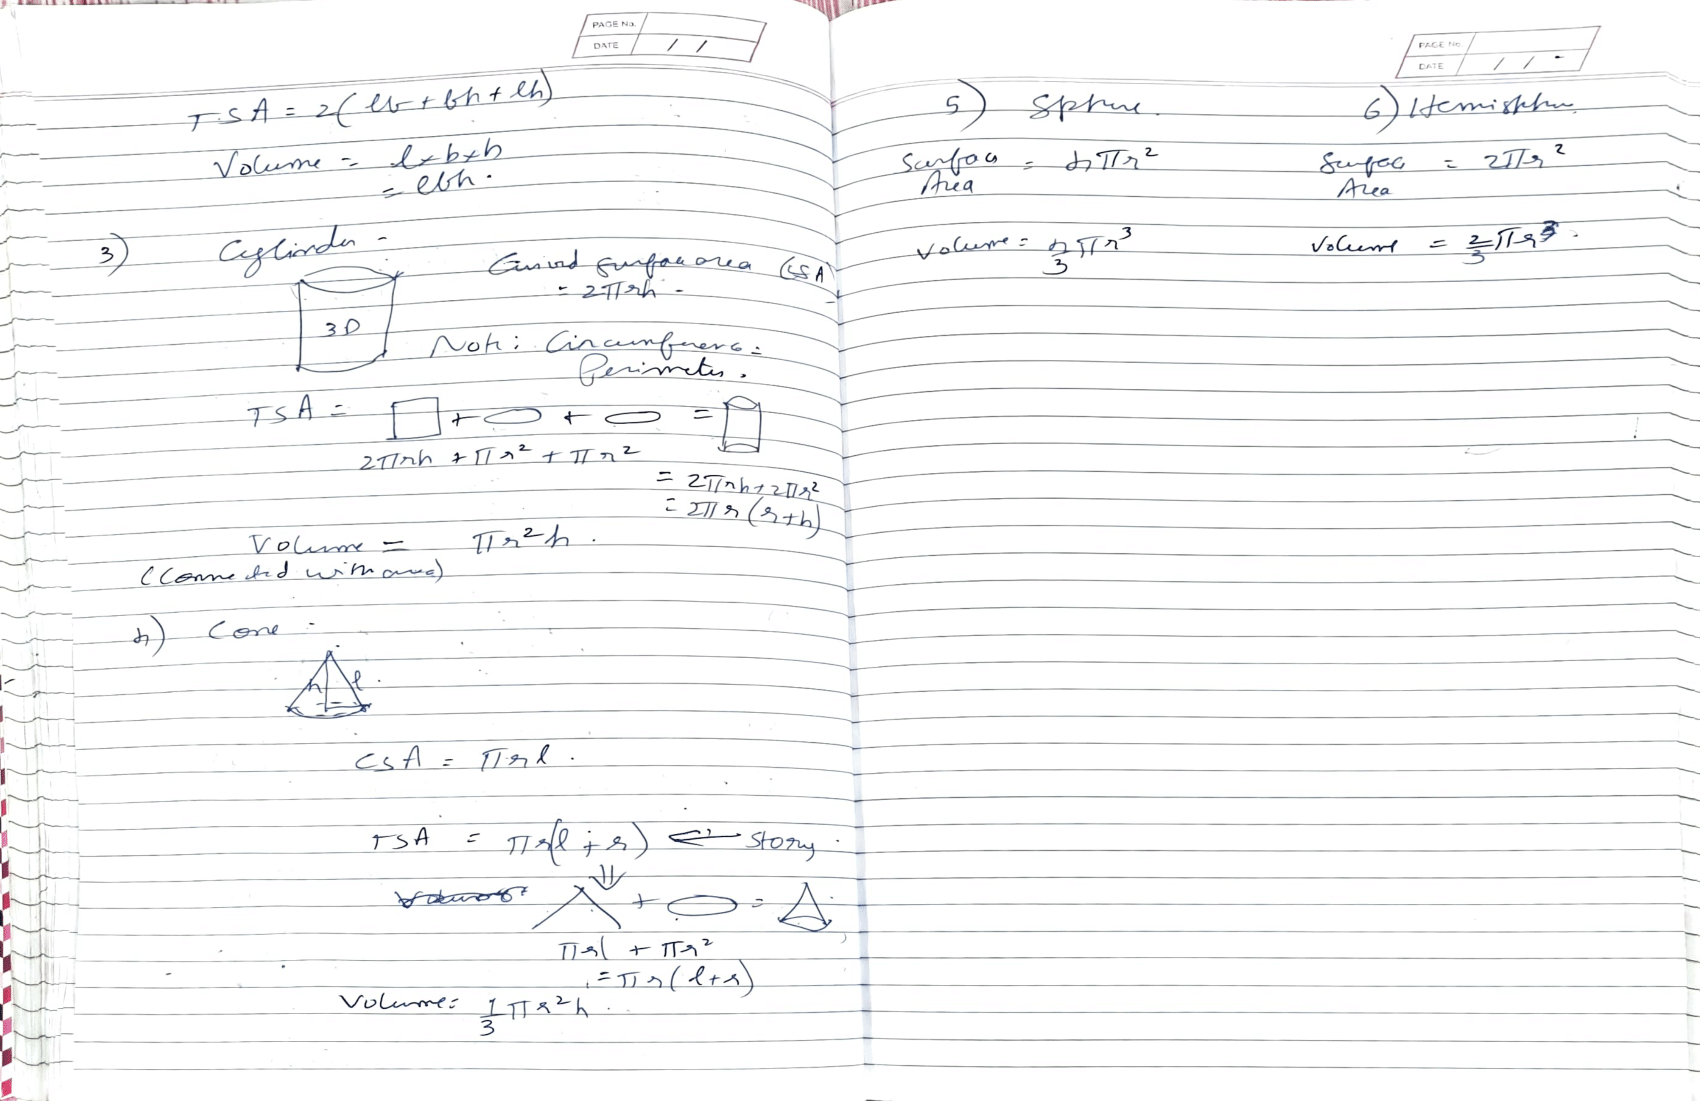 PAGE No.
DATE / /
TSA = 2(lb + bh + lh)
Volume = l×b×h
= lbh.
3) Cylinder -
Curved surface area (CSA)
= 2πrh -
3D
Note: Circumference =
Perimeter.
TSA = + + =
2πrh + πr² + πr²
= 2πrh + 2πr²
= 2πr(r+h)
Volume = πr²h.
(Connected with area)
4) Cone -
h l
CSA = πrl.
TSA = πr(l + r) ⇐ Story
+ =
πrl + πr²
= πr(l+r)
Volume = 1/3 πr²h
PAGE No.
DATE / /
5) Sphere.
Surface Area = 4πr²
Volume = 4/3 πr³
6) Hemisphere
Surface Area = 2πr²
Volume = 2/3 πr³.